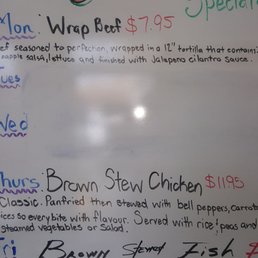 Specials
Mon: Wrap Beef $7.95
ef seasoned to perfection, wrapped in a 12" tortilla that contains
napple salsa, lettuce and finished with Jalapeno cilantro sauce.
Tues
Wed
Thurs. Brown Stew Chicken $11.95
Classic. Panfried then stewed with bell peppers, carrots
ices so every bite with flavour. Served with rice & peas and
steamed vegetables or Salad.
Fri Brown Stewed Fish